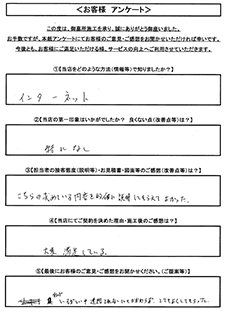 ＜お客様 アンケート＞
この度は、御墓所施工を承り、誠にありがとう御座いました。
お手数ですが、本紙アンケートにてお客様のご意見・ご感想をお聞かせいただければ幸いです。
今後とも、お客様にご満足いただける様、サービスの向上へご利用させていただきます。
①【当店をどのような方法(情報等)で知りましたか？】
インターネット
②【当店の第一印象はいかがでしたか？ 良くない点(改善点等)は？】
特になし
③【担当者の接客態度(説明等)・お見積書・図面等のご感想(改善点等)は？】
こちらの求めている内容を的確に説明してもらえてよかった。
④【当店にてご契約を決めた理由・施工後のご感想は？】
大変 満足している。
⑤【最後にお客様のご意見・ご感想をお聞かせください。(ご提案等)】